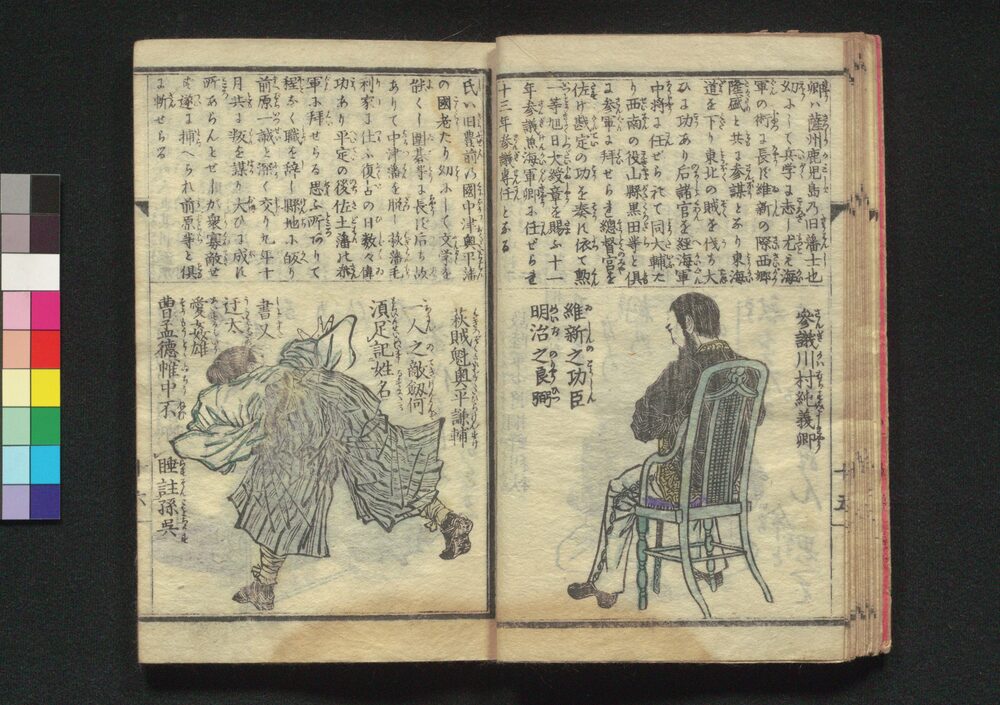 卿ハ薩州鹿児島乃旧藩士也
幼にして兵学に志し尤も海
軍の術に長ず維新の際西郷
隆盛と共に参謀となり東海
道を下り東北の賊を伐ち大
ひに功あり后諸官を経海軍
中将に任ぜられて同大輔た
り西南の役山縣黒田等と倶
に参軍に拝せられ總督宮を
佐け勘定の功を奏す依て勲
一等旭日大綬章を賜ふ十一
年参議兼海軍卿に任ぜられ
十三年参議専任となる
参議川村純義卿
維新之功臣
明治之良弼
氏ハ旧豊前の國中津奥平藩
の國老たり幼にして文学を
能くし囲碁等に長ぜ后ち故
ありて中津藩を脱し萩藩毛
利家に仕ふ復古の日数々偉
功あり平定の後佐土藩に赤
軍に拝せらる思ふ所ありて
程なく職を辞し闕地に皈り
前原一誠と深く交り九年十
月共に叛を謀り大ひに成に
所あらんとせしが衆寡敵せ
ず遂に捕へられ前原等と倶
に斬せらる
萩賊魁奥平謙輔
一人之敵劔何
須足記姓名
書又
迂太
愛奸雄
曹孟德帷中不
睡註孫呉